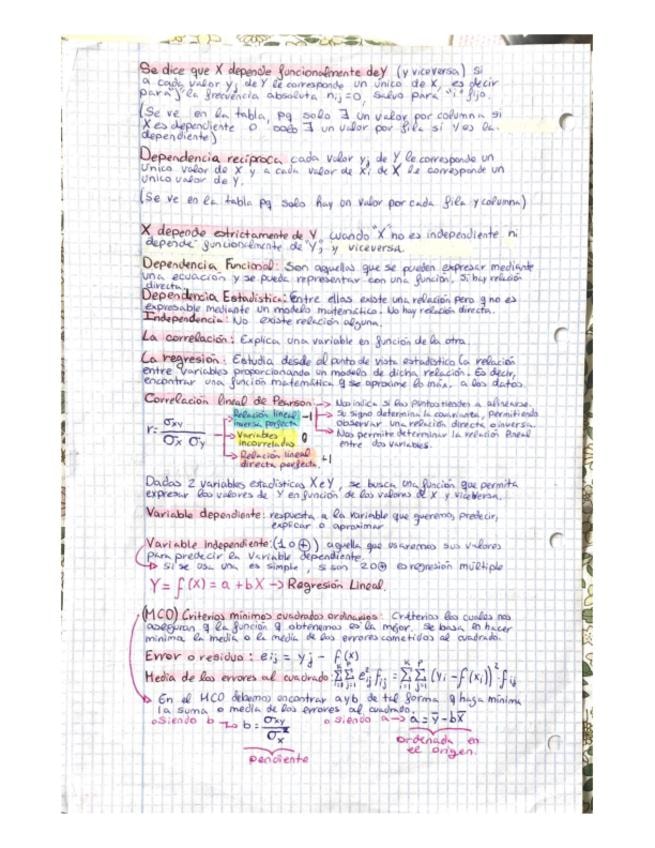 Se dice que X depende funcionalmente de Y (y viceversa) si
a cada valor yj de Y le corresponde un único de X, es decir
para "j" la frecuencia absoluta nij=0, salvo para "i" fijo.
(Se ve en la tabla, pq solo ∃ un valor por columna si
X es dependiente o solo ∃ un valor por fila si Y es la
dependiente)
Dependencia recíproca cada valor yj de Y le corresponde un
único valor de X y a cada valor de xi de X le corresponde un
único valor de Y.
(Se ve en la tabla pq solo hay un valor por cada fila y columna)
X depende estrictamente de Y, cuando "X" no es independiente ni
depende funcionalmente de "Y", y viceversa.
Dependencia Funcional: Son aquellas que se pueden expresar mediante
una ecuación y se pueda representar con una función. Si hay relación
directa.
Dependencia Estadística: Entre ellas existe una relación pero q no es
expresable mediante un modelo matemático. No hay relación directa.
Independencia: No existe relación alguna.
La correlación: Explica una variable en función de la otra.
La regresión: Estudia desde el punto de vista estadístico la relación
entre variables proporcionando un modelo de dicha relación. Es decir,
encontrar una función matemática q se aproxime lo máx. a los datos.
Correlación lineal de Pearson → Nos indica si los puntos tienden a alinearse.
→ Su signo determina la covarianza, permitiendo
observar una relación directa o inversa.
→ Nos permite determinar la relación lineal
entre dos variables.
r = σxy / σx σy
→ Relación lineal inversa perfecta -1
→ Variables incorreladas 0
→ Relación lineal directa perfecta +1
Dadas 2 variables estadísticas X e Y, se busca una función que permita
expresar los valores de Y en función de los valores de X y viceversa.
Variable dependiente: respuesta a la variable que queremos, predecir,
explicar o aproximar
Variable independiente: (1 o ⊕) aquella que usaremos sus valores
para predecir la variable dependiente.
→ si se usa una es simple, si son 2 o ⊕ es regresión múltiple
Y = f(X) = a + bX → Regresión Lineal.
(MCO) Criterios mínimos cuadrados ordinarios: Criterios los cuales nos
aseguran q la función q obtenemos es la mejor, se basa en hacer
mínima la media o la media de los errores cometidos al cuadrado.
Error o residuo: eij = yj - f(x)
Media de los errores al cuadrado: Σ Σ e²ij fij = Σ Σ (yi - f(xi))² · fij
→ En el MCO debemos encontrar a y b de tal forma q haga mínima
la suma o media de los errores al cuadrado.
o siendo b → b = σxy / σx² o siendo a → a = ȳ - bx̄
pendiente
ordenada en
el origen.